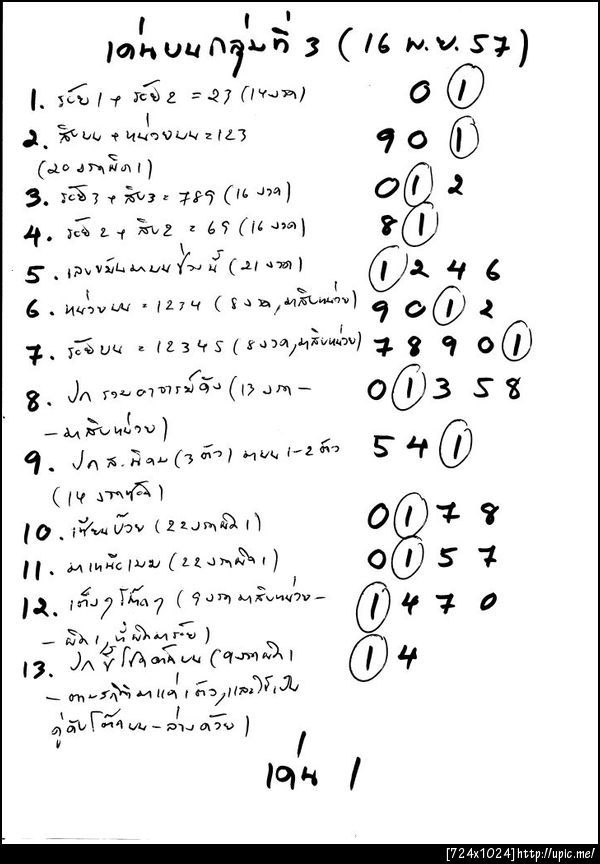 เด่นบนกลุ่มที่ 3 (16 พ.ย. 57)
1. ร้อย1 + ร้อย2 = 23 (14งวด) 0 1
2. สิบบน + หน่วยบน = 123 9 0 1
(20งวดผิด1)
3. ร้อย3 + สิบ3 = 789 (16งวด) 0 1 2
4. ร้อย2 + สิบ2 = 69 (16งวด) 8 1
5. เลขขยันมาบนช่วงนี้ (21งวด) 1 2 4 6
6. หน่วยบน = 1234 (8งวด,มาสิบหน่วย) 9 0 1 2
7. ร้อยบน = 12345 (8งวด,มาสิบหน่วย) 7 8 9 0 1
8. ปก รวยอาจารย์ดัง (13งวด - 0 1 3 5 8
- มาสิบหน่วย)
9. ปก ส. (3ตัว) มาบน 1-2 ตัว 5 4 1
(14
10. เซียนป๋วย (22งวดผิด1) 0 1 7 8
11. (22งวดผิด1) 0 1 5 7
12. เต็งๆโต๊ดๆ (9งวดมาสิบหน่วย - 1 4 7 0
- ผิด1,ที่ผิดมาร้อย)
13. ปก (9งวดผิด1 1 4
- มาแค่1ตัว,และใช้เป็น
คู่กับโต๊ดบน - ล่างด้วย)
เด่น 1
[724x1024]http://upic.me/